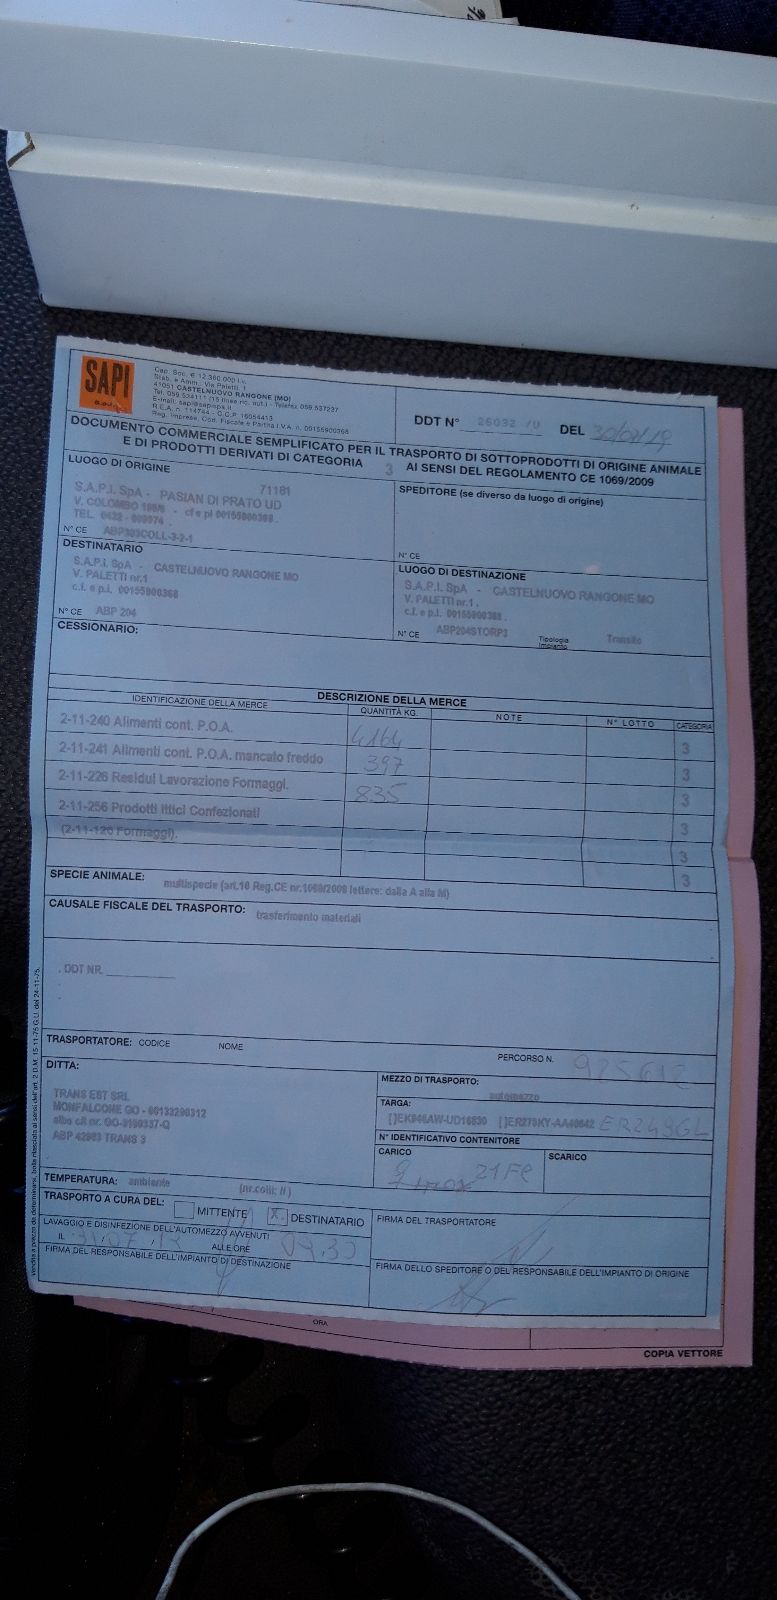 SAPI
S.p.A.
Cap. Soc. € 12.360.000 i.v.
Stab. e Amm.: Via Paletti, 1
41051 CASTELNUOVO RANGONE (MO)
Tel. 059.534111 (15 linee ric. aut.) - Telefax 059.537237
E-mail: sapi@sapispa.it
R.E.A. n. 114744 - C.C.P. 16054413
Reg. Imprese, Cod. Fiscale e Partita I.V.A. n. 00155900368
DDT N° 26032 /U DEL 30/07/19
DOCUMENTO COMMERCIALE SEMPLIFICATO PER IL TRASPORTO DI SOTTOPRODOTTI DI ORIGINE ANIMALE
E DI PRODOTTI DERIVATI DI CATEGORIA 3 AI SENSI DEL REGOLAMENTO CE 1069/2009
LUOGO DI ORIGINE
71181
S.A.P.I. SpA - PASIAN DI PRATO UD
V. COLOMBO - cf e pi 00155900368 .
TEL. 0432 -
N° CE ABP303COLL-3-2-1
SPEDITORE (se diverso da luogo di origine)
N° CE
DESTINATARIO
S.A.P.I. SpA - CASTELNUOVO RANGONE MO
V. PALETTI nr.1
c.f. e p.i. 00155900368
N° CE ABP 204
LUOGO DI DESTINAZIONE
S.A.P.I. SpA - CASTELNUOVO RANGONE MO
V. PALETTI nr.1 .
c.f. e p.i. 00155900368 .
N° CE ABP204STORP3 Tipologia Impianto Transito
CESSIONARIO:
DESCRIZIONE DELLA MERCE
IDENTIFICAZIONE DELLA MERCE QUANTITÀ KG. NOTE N° LOTTO CATEGORIA
2-11-240 Alimenti cont. P.O.A. 4164 3
2-11-241 Alimenti cont. P.O.A. mancato freddo 397 3
2-11-226 Residui Lavorazione Formaggi. 835 3
2-11-256 Prodotti Ittici Confezionati 3
(2-11-126 Formaggi). 3
3
SPECIE ANIMALE: multispecie (art.10 Reg.CE nr.1069/2009 lettere: dalla A alla M)
CAUSALE FISCALE DEL TRASPORTO: trasferimento materiali
. DDT NR.
TRASPORTATORE: CODICE NOME PERCORSO N.
DITTA:
TRANS EST SRL
MONFALCONE GO - 00133290312
albo c/t nr. GO-
ABP TRANS 3
MEZZO DI TRASPORTO: automezzo
TARGA:
N° IDENTIFICATIVO CONTENITORE
CARICO
21 Fe
SCARICO
TEMPERATURA: ambiente (nr.colli: // )
TRASPORTO A CURA DEL: MITTENTE X DESTINATARIO
LAVAGGIO E DISINFEZIONE DELL'AUTOMEZZO AVVENUTI
IL 31,07,19 ALLE ORE 09.30
FIRMA DEL RESPONSABILE DELL'IMPIANTO DI DESTINAZIONE
FIRMA DEL TRASPORTATORE
FIRMA DELLO SPEDITORE O DEL RESPONSABILE DELL'IMPIANTO DI ORIGINE
ORA
COPIA VETTORE